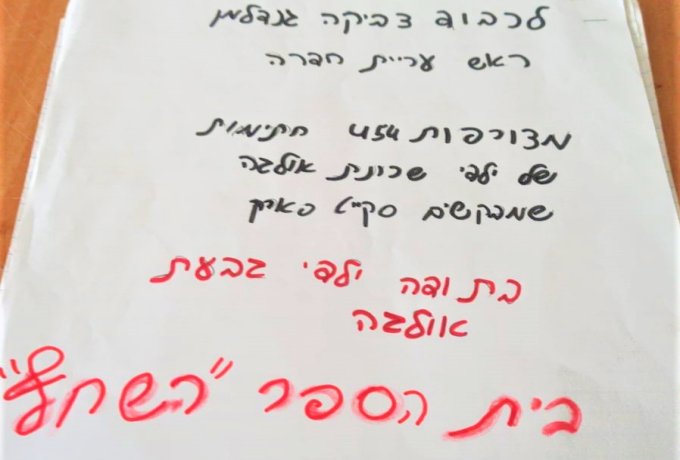 לכבוד צביקה גנדלמן
ראש עריית חדרה
מצורפות 454 חתימות
של ילדי שכונת אולגה
שמבקשים סקייט פארק
בתודה ילדי גבעת
אולגה
בית הספר "השחף"